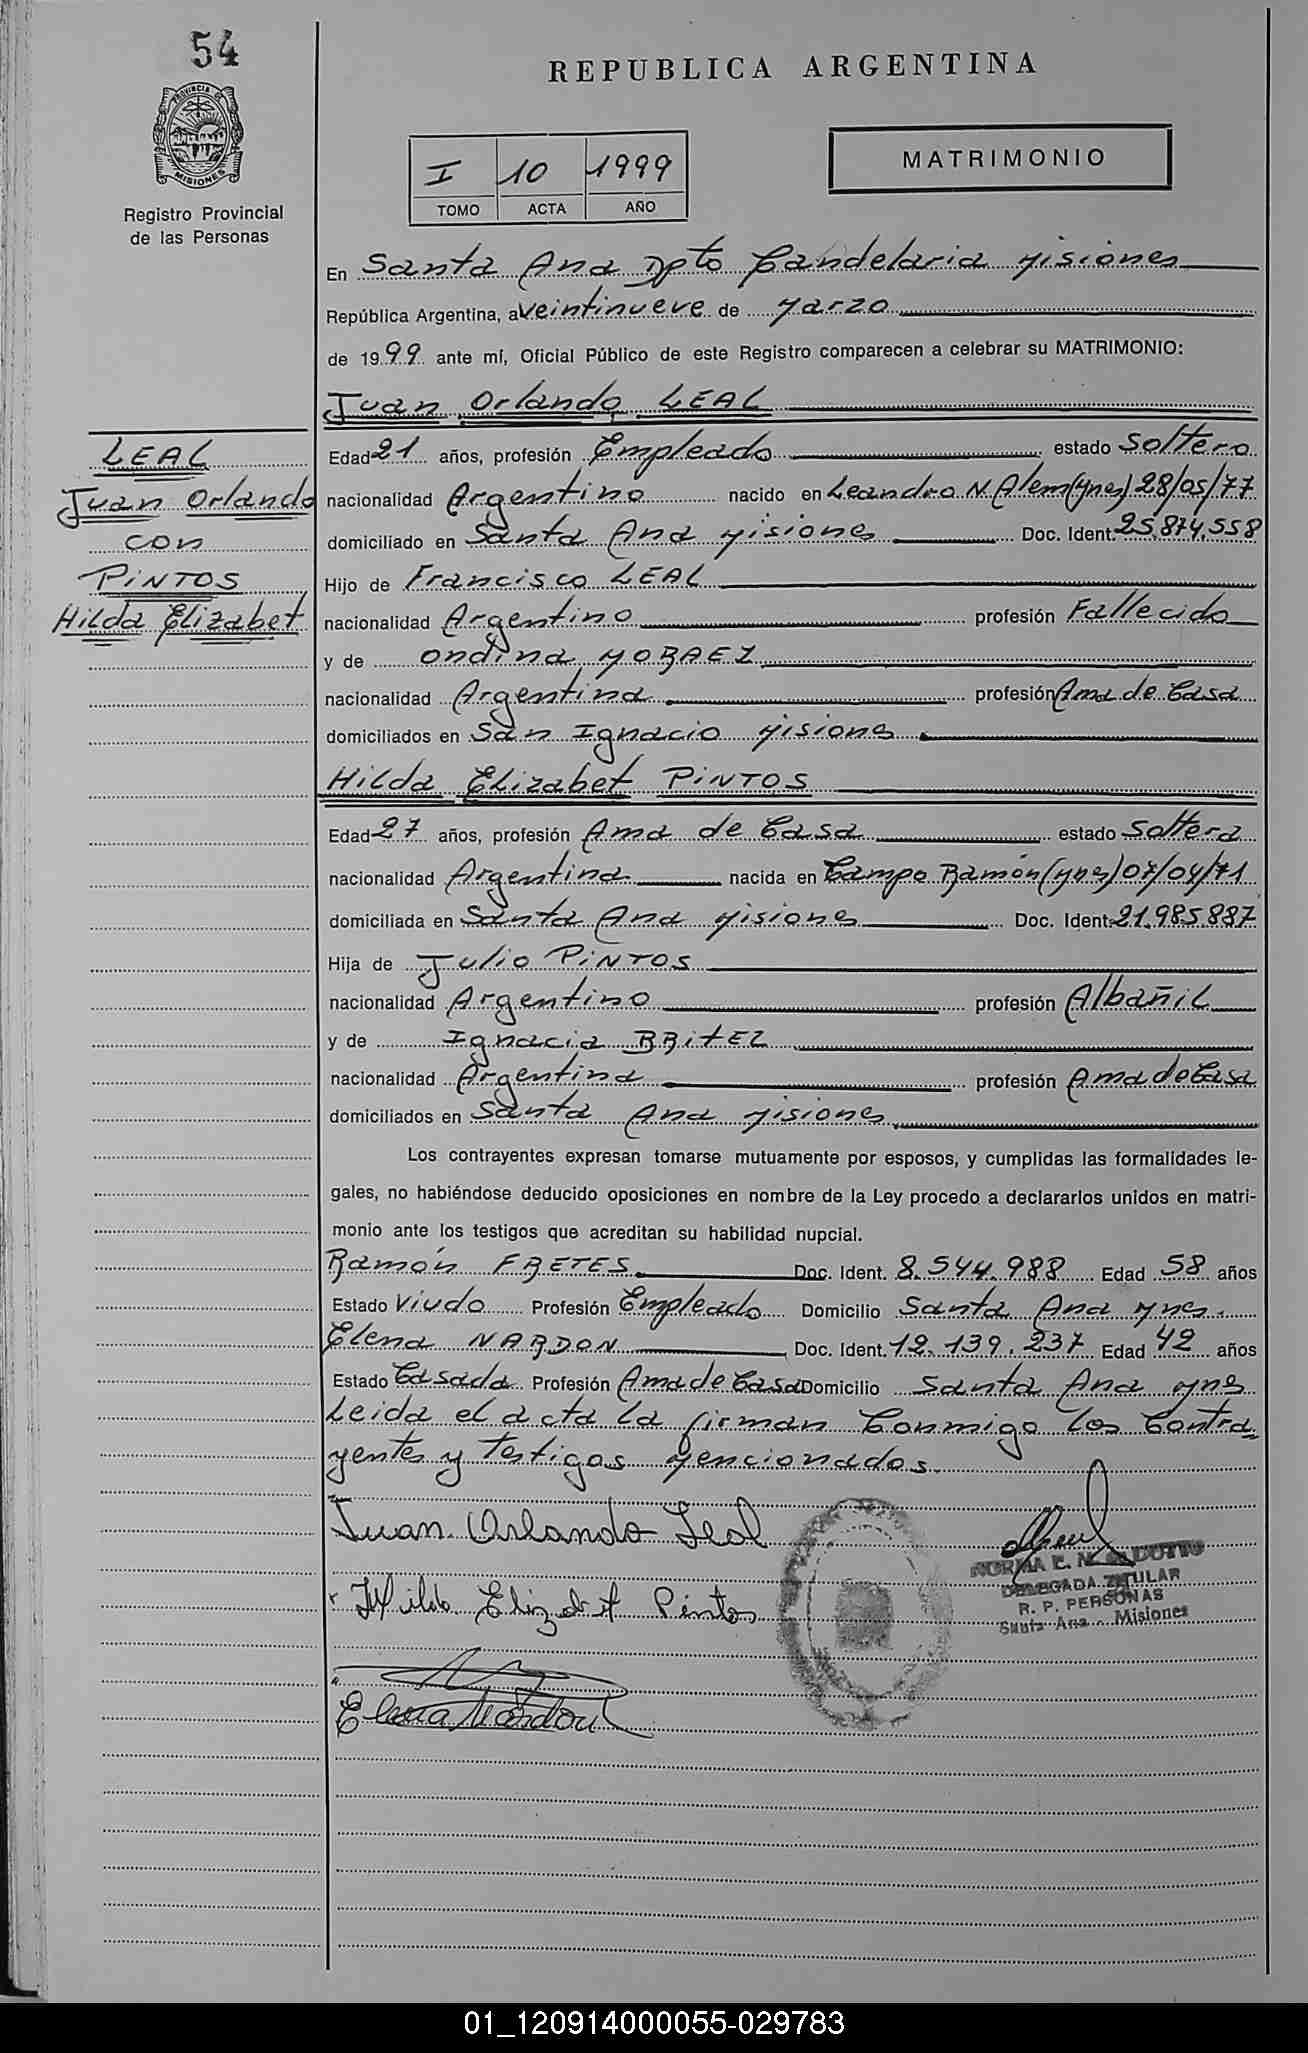 54
REPUBLICA ARGENTINA
PROVINCIA DE
MISIONES
Registro Provincial
de las Personas
I 10 1999
TOMO ACTA AÑO
MATRIMONIO
En Santa Ana Dpto Candelaria Misiones
República Argentina, a veintinueve de Marzo
de 1999 ante mí, Oficial Público de este Registro comparecen a celebrar su MATRIMONIO:
Juan Orlando LEAL
LEAL
Juan Orlando
con
PINTOS
Hilda Elizabet
Edad 21 años, profesión Empleado estado Soltero
nacionalidad Argentino nacido en Leandro N. Alem (Mnes) 28/05/77
domiciliado en Santa Ana Misiones Doc. Ident. 25.874.558
Hijo de Francisco LEAL
nacionalidad Argentino profesión Fallecido
y de Ondina MORAEZ
nacionalidad Argentina profesión Ama de Casa
domiciliados en San Ignacio Misiones
Hilda Elizabet PINTOS
Edad 27 años, profesión Ama de Casa estado Soltera
nacionalidad Argentina nacida en Campo Ramón (Mnes) 07/04/71
domiciliada en Santa Ana Misiones Doc. Ident. 21.985.887
Hija de Julio PINTOS
nacionalidad Argentino profesión Albañil
y de Ignacia BRITEZ
nacionalidad Argentina profesión Ama de Casa
domiciliados en Santa Ana Misiones
Los contrayentes expresan tomarse mutuamente por esposos, y cumplidas las formalidades le-
gales, no habiéndose deducido oposiciones en nombre de la Ley procedo a declararlos unidos en matri-
monio ante los testigos que acreditan su habilidad nupcial.
Ramón FRETES Doc. Ident. 8.544.988 Edad 58 años
Estado Viudo Profesión Empleado Domicilio Santa Ana Mnes.
Elena NARDON Doc. Ident. 12.139.237 Edad 42 años
Estado Casada Profesión Ama de Casa Domicilio Santa Ana Mnes
Leida el acta la firman Conmigo los Contra
yentes y testigos Mencionados
Juan Orlando Leal
Hilda Elizabet Pintos
Elena Nardon
NORMA E.
DELEGADA TITULAR
R. P. PERSONAS
Santa Ana - Misiones
01_120914000055-029783